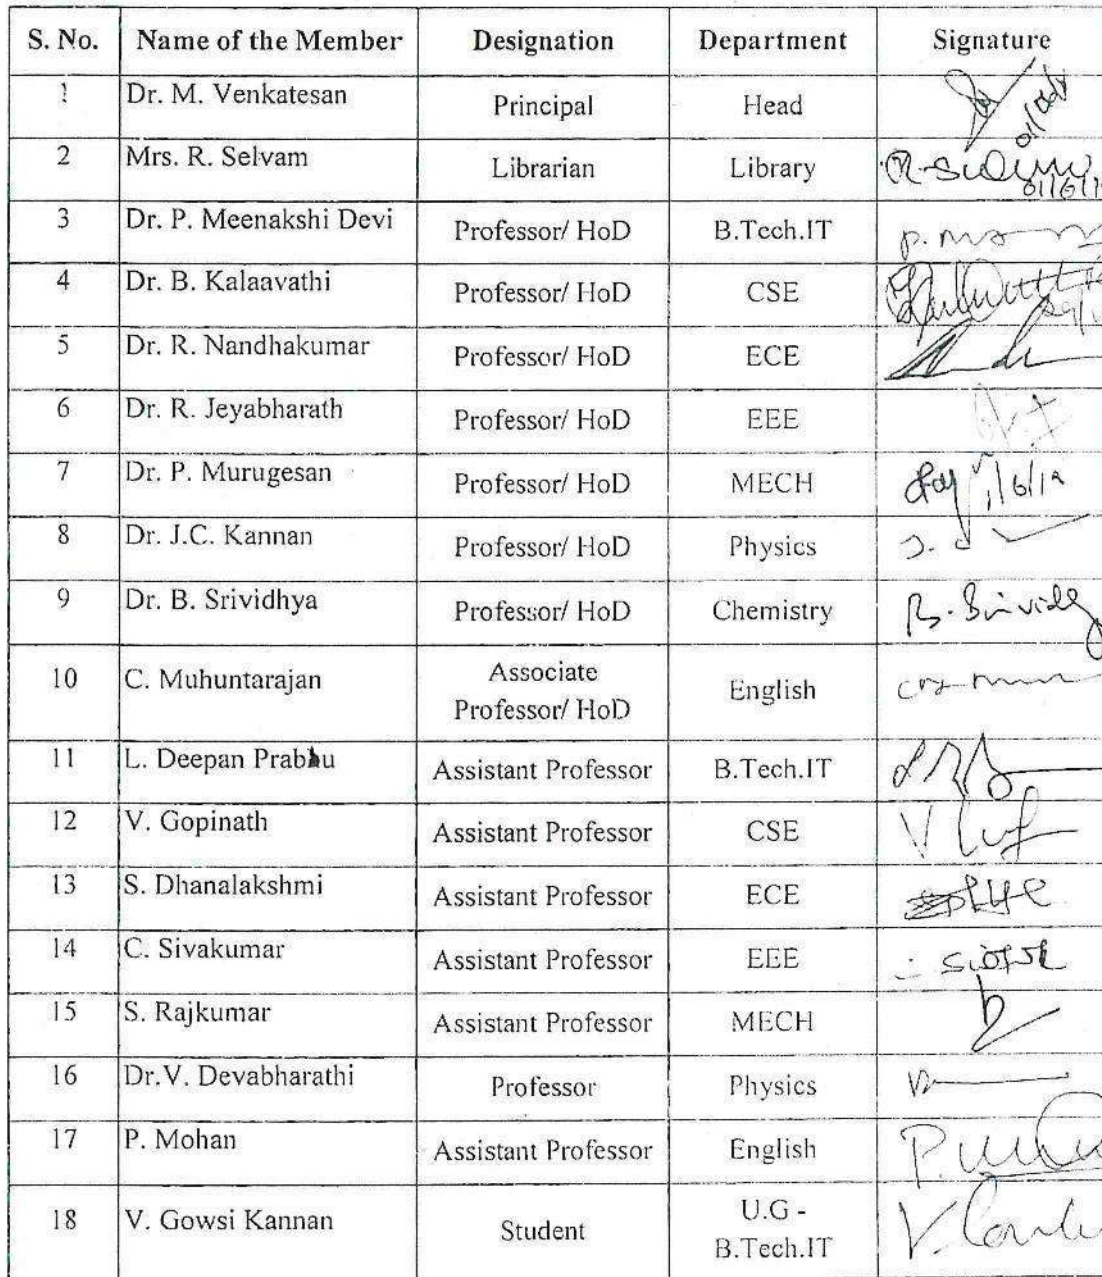 S. No. Name of the Member Designation Department Signature
1 Dr. M. Venkatesan Principal Head
2 Mrs. R. Selvam Librarian Library
3 Dr. P. Meenakshi Devi Professor/ HoD B.Tech.IT
4 Dr. B. Kalaavathi Professor/ HoD CSE
5 Dr. R. Nandhakumar Professor/ HoD ECE
6 Dr. R. Jeyabharath Professor/ HoD EEE
7 Dr. P. Murugesan Professor/ HoD MECH
8 Dr. J.C. Kannan Professor/ HoD Physics
9 Dr. B. Srividhya Professor/ HoD Chemistry B. Srividhy
10 C. Muhuntarajan Associate
Professor/ HoD English
11 L. Deepan Prabhu Assistant Professor B.Tech.IT
12 V. Gopinath Assistant Professor CSE
13 S. Dhanalakshmi Assistant Professor ECE
14 C. Sivakumar Assistant Professor EEE
15 S. Rajkumar Assistant Professor MECH
16 Dr.V. Devabharathi Professor Physics
17 P. Mohan Assistant Professor English
18 V. Gowsi Kannan Student U.G -
B.Tech.IT